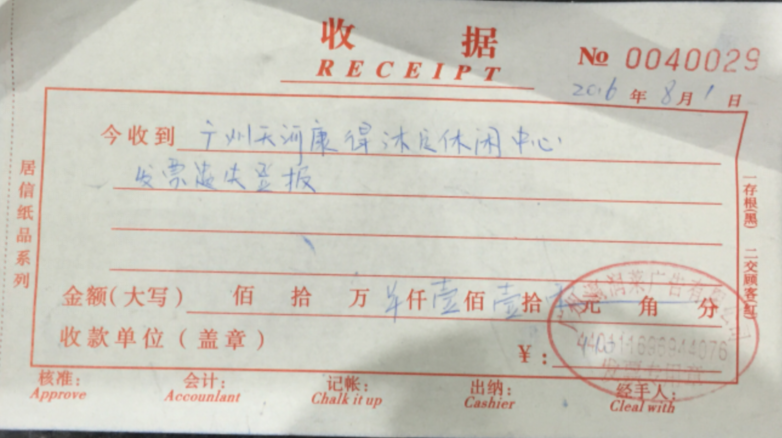 收 据
RECEIPT
№ 0040029
2016 年 8 月 1 日
今收到 广州天河康得沐足休闲中心
发票遗失登报
金额(大写) 佰 拾 万 仟 壹 佰 壹 拾 元 角 分
收款单位(盖章)
¥:
核准: 会计: 记帐: 出纳: 经手人:
Approve Accounlant Chalk it up Cashier Cleal with
居信纸品系列
一存根(黑) 二交顾客(红)